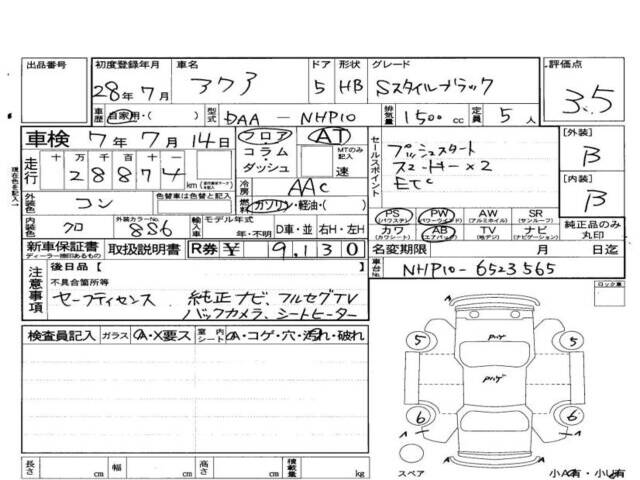 出品番号 初度登録年月 車名 ドア 形状 グレード 評価点
28年7月 アクア 5 HB Sスタイルブラック 3.5
車歴 自家用・( ) 型式 DAA-NHP10 排気量 1500cc 定員 5人
車検 7年7月14日 フロア AT
コラム・ダッシュ MTのみ記入 速
走行 十万千百十一
28874 km
冷房 AAC
燃料 ガソリン・軽油・( )
セールスポイント
プッシュスタート
スマートキー×2
ETC
[外装] B
[内装] B
現在色を記入
外装色 コン 色替車は色替元色を記入
内装色 クロ 外装カラーNo. 8S6 輸入車 モデル年式 年・不明 D車・並 右H・左H
PS (パワステ) PW (パワーウインド) AW (アルミホイル) SR (サンルーフ)
カワ (カワシート) AB (エアバッグ) TV (地デジ) ナビ (ナビゲーション)
純正品のみ丸印
新車保証書 ディーラー捺印あるもの 取扱説明書 R券 ¥ 9,130
名変期限 月 日迄
車台No. NHP10-6523565
注意事項
後日品[ ]
不具合箇所等
セーフティセンス、純正ナビ、フルセグTV
バックカメラ、シートヒーター
ロック車
検査員記入 ガラス A・X要ス 室内シート A・コゲ・穴・汚れ・破れ
5 5
6 6
A A
スペア 小A有・小U有
長さ cm 幅 cm 高さ cm 積載量 kg